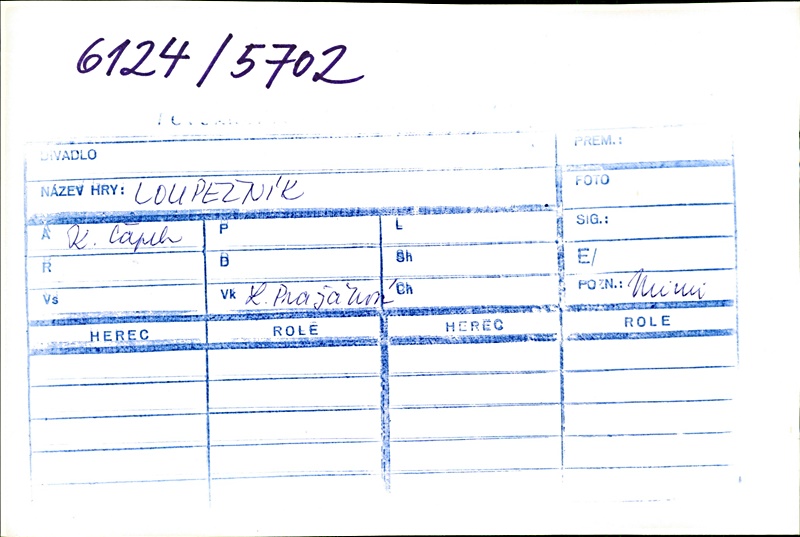 6124/5702
DIVADLO
PREM.:
NÁZEV HRY: LOUPEŽNÍK
FOTO
SIG.:
A K. Čapek
P
L
R
D
Sh
E/
Vs
Vk K. Pražáková
Ch
POZN.: Mimi
HEREC ROLE HEREC ROLE